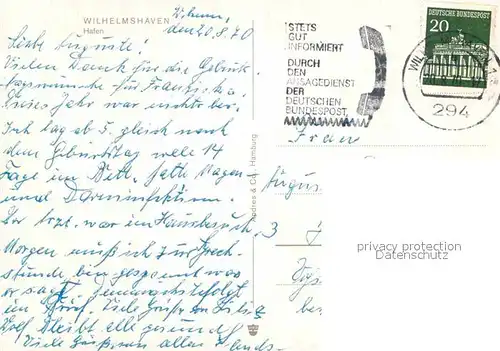 WILHELMSHAVEN
Hafen
W'haven,
den 20.8.70
Liebe Auguste!
Vielen Dank für die Geburts-
tagswünsche für Franziska.
Dieses Jahr war
Ich lag ab 5. gleich nach
dem Geburtstag 14
Tage im Bett, hatte Magen-
und Darminfektion.
Der Arzt war im Hausbesuch.
Morgen muß ich zur Sprech-
stunde, bin gespannt was
er sagt. Demnächst folgt
ein Brief. Viele Grüße
bleibt alle gesund!
Viele Grüße von allen
Andres & Co., Hamburg
STETS
GUT
INFORMIERT
DURCH
DEN
ANSAGEDIENST
DER
DEUTSCHEN
BUNDESPOST
DEUTSCHE BUNDESPOST
20
WILH
294
Frau
Augus
3
privacy protection
Datenschutz